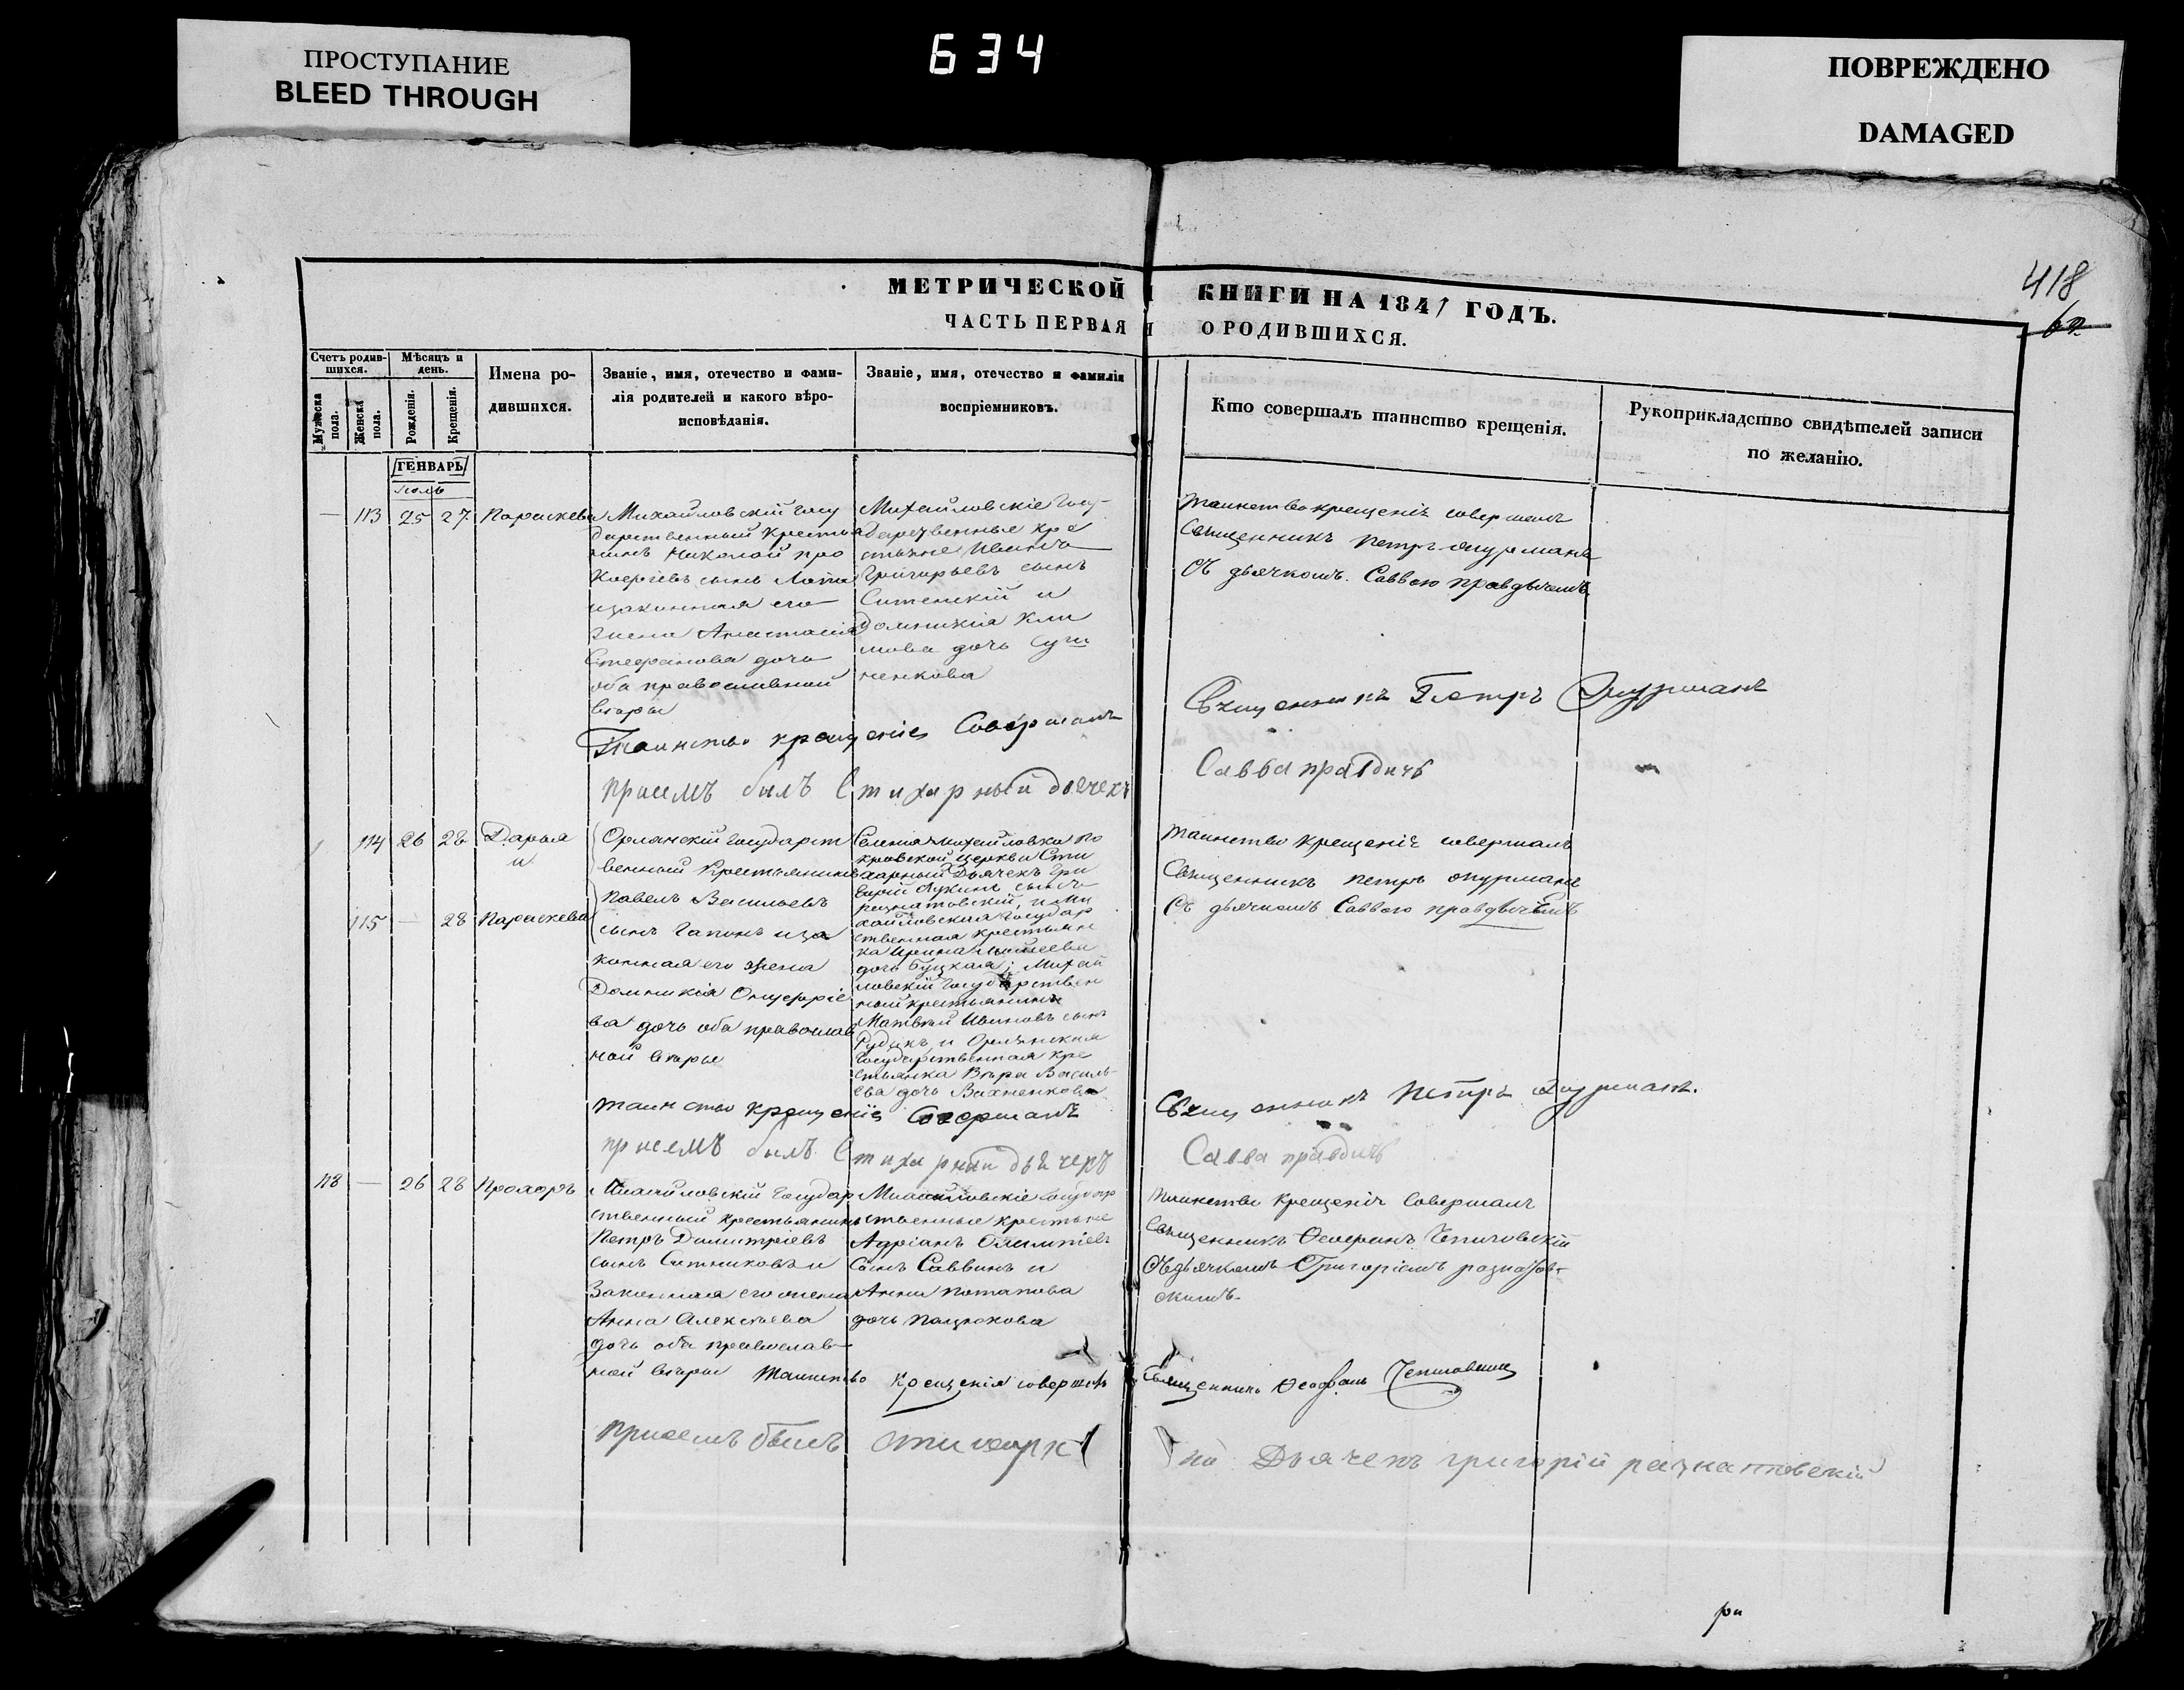 ПРОСТУПАНИЕ
BLEED THROUGH
634
ПОВРЕЖДЕНО
DAMAGED
418
МЕТРИЧЕСКОЙ КНИГИ НА 1847 ГОДЪ.
ЧАСТЬ ПЕРВАЯ О РОДИВШИХСЯ.
Счетъ родив-
шихся.
Мужеска
пола.
Женска
пола.
Мѣсяцъ и
день.
Рожденія.
Крещенія.
Имена ро-
дившихся.
Званіе, имя, отечество и фами-
лія родителей и какого вѣро-
исповѣданія.
Званіе, имя, отечество и фамилія
воспріемниковъ.
Кто совершалъ таинство крещенія.
Рукоприкладство свидѣтелей записи
по желанію.
ГЕНВАРЬ
113 25 27 Параскева
Михайловскій Госу
дарственный Крестья
нинъ Николай Про
сынъ
изаконная его
жена Анастасія
Стефанова дочь
оба православной
вѣры
Михайловскіе Госу-
дарственные кре
стьяне Иванъ
Григорьевъ сынъ
Ситенскій и
Домникія Кли
мова дочь
ненкова
таинство крещенія совершалъ
Священникъ Петръ
Съ дьячкомъ Саввою Правдычемъ
Таинство крещенія Совершалъ Священникъ Петръ
приемъ былъ Стихарный дьячекъ Савва правдичъ
114 26 28 Дарья
и
115 — 28 Параскева
Орлянскій Государст
венный Крестьянинъ
Павелъ Васильевъ
сынъ Гапонъ иза
конная его жена
Домникія
ва дочь оба православ
ной вѣры
Селения Михайловки По
кровской церкви Сти
харный Дьячекъ Гри
горій сынъ
разнатовскій, и Ми
хайловская Государ
ственная крестьян
ка Ирина
дочь Буцкая; Михай
ловскій Государствен
ный крестьянинъ
Матвѣй Ивановъ сынъ
и Орлянская
Государственная кре
стьянка Вѣра Василь-
ева дочь Вахненкова
таинство крещенія совершалъ
Священникъ Петръ
Съ дьячкомъ Саввою Правдычемъ
таинство крещенія Совершалъ Священникъ Петръ
приемъ былъ Стихарный дьячекъ Савва правдичъ
118 — 26 28 Прохоръ
Михайловскій Государ
ственный крестьянинъ
Петръ Димитріевъ
сынъ Ситниковъ и
Законная его жена
Анна Алексѣева
дочь оба православ-
ной вѣры
Михайловскіе Государ
ственные крестьяне
Адріанъ Олимпіевъ
сынъ Саввинъ и
Анна Потапова
дочь Пацюкова
таинство крещенія Совершалъ
Священникъ Ѳеофанъ
Съ дьячкомъ Григоріемъ разнатов-
скимъ.
Таинство крещенія совершалъ Священникъ Ѳеофанъ
приемъ былъ Дьячекъ григорій разнатовскій